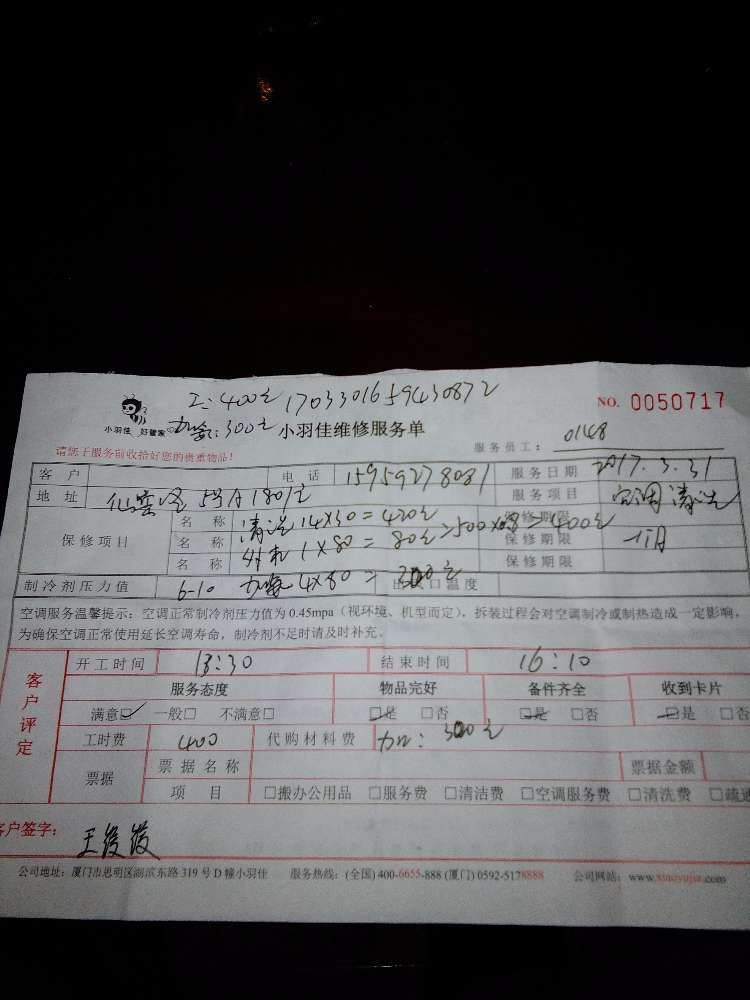 工：400元 1703301659430872
NO. 0050717
小羽佳 好管家
加氟：300元
小羽佳维修服务单
请您于服务前收拾好您的贵重物品！
服务员工： 0148
客户 电话 15959278081 服务日期 2017.3.31
地址 5号A1801 服务项目 空调清洗
保修项目
名称 清洗 14X30=420元 保修期限
名称 外机 1X80=80元 >500 =400元 保修期限 一月
名称 保修期限
制冷剂压力值 6-10 加氟 4X80= 口温度
空调服务温馨提示：空调正常制冷剂压力值为 0.45mpa（视环境、机型而定），拆装过程会对空调制冷或制热造成一定影响，
为确保空调正常使用延长空调寿命，制冷剂不足时请及时补充。
客户评定
开工时间 13:30 结束时间 16:10
服务态度 物品完好 备件齐全 收到卡片
满意☑ 一般□ 不满意□ ☑是 □否 ☑是 □否 ☑是 □否
工时费 400 代购材料费 300元
票据 票据名称 票据金额
项目 □搬办公用品 □服务费 □清洁费 □空调服务费 □清洗费 □疏通
客户签字：
公司地址：厦门市思明区湖滨东路 319 号 D 幢小羽佳 服务热线：(全国) 400-6655-888 (厦门) 0592-5178888 公司网站：www.xiaoyujia.com